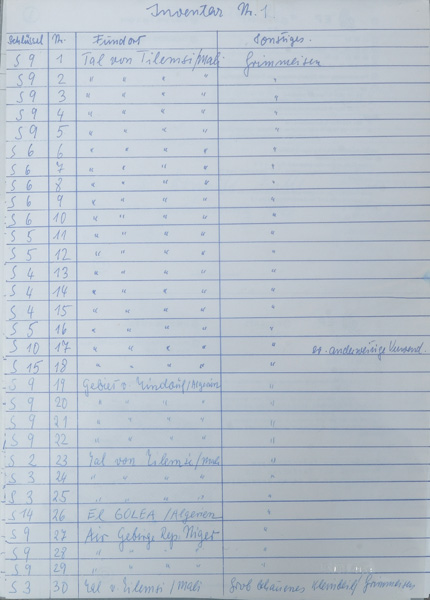 Inventar Nr. 1.
Schlüssel Nr. Fundort Sonstiges.
S 9 1 Tal von Tilemsi/Mali Grimmeisen
S 9 2 " " " " "
S 9 3 " " " " "
S 9 4 " " " " "
S 9 5 " " " " "
S 6 6 " " " " "
S 6 7 " " " " "
S 6 8 " " " " "
S 6 9 " " " " "
S 6 10 " " " " "
S 5 11 " " " " "
S 5 12 " " " " "
S 4 13 " " " " "
S 4 14 " " " " "
S 4 15 " " " " "
S 5 16 " " " " "
S 10 17 " " " " " anderweitige
S 15 18 " " " " "
S 9 19 Gebiet v Tindouf/Algerien "
S 9 20 " " " " "
S 9 21 " " " " "
S 9 22 " " " " "
S 2 23 Tal von Tilemsi/Mali "
S 3 24 " " " " "
S 3 25 " " " " "
S 14 26 EL GOLEA /Algerien "
S 9 27 Air Gebirge Rep. Niger "
S 9 28 " " " " "
S 9 29 " " " " "
S 3 30 Tal v Tilemsi / Mali Grob behauenes / Grimmeisen